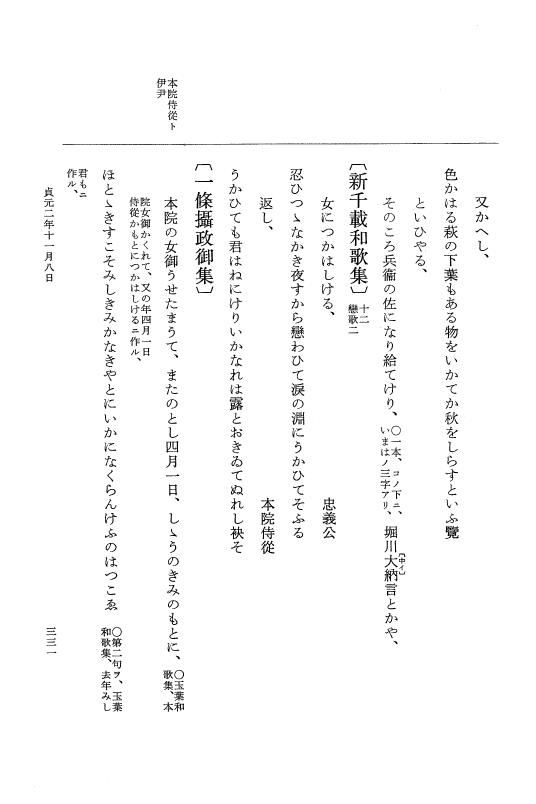 又かへし、
色かはる萩の下葉もある物をいかてか秋をしらすといふ覽
といひやる、
そのころ兵衞の佐になり給てけり、〇一本、コノ下ニ、いまはノ三字アリ、堀川大納言とかや、
〔中イ〕
〔新千載和歌集〕十二 戀歌二
女につかはしける、 忠義公
忍ひつゝなかき夜すから戀わひて淚の淵にうかひてそふる
返し、 本院侍從
うかひても君はねにけりいかなれは露とおきゐてぬれし袂そ
〔一條攝政御集〕
本院侍從ト伊尹
本院の女御うせたまうて、またのとし四月一日、しゝうのきみのもとに、〇玉葉和歌集、本
院女御かくれて、又の年四月一日
侍從かもとにつかはしけるニ作ル、
ほとゝきすこそみしきみかなきやとにいかになくらんけふのはつこゑ 〇第二句ヲ、玉葉和歌集、去年みし
君もニ
作ル、
貞元二年十一月八日
三三一